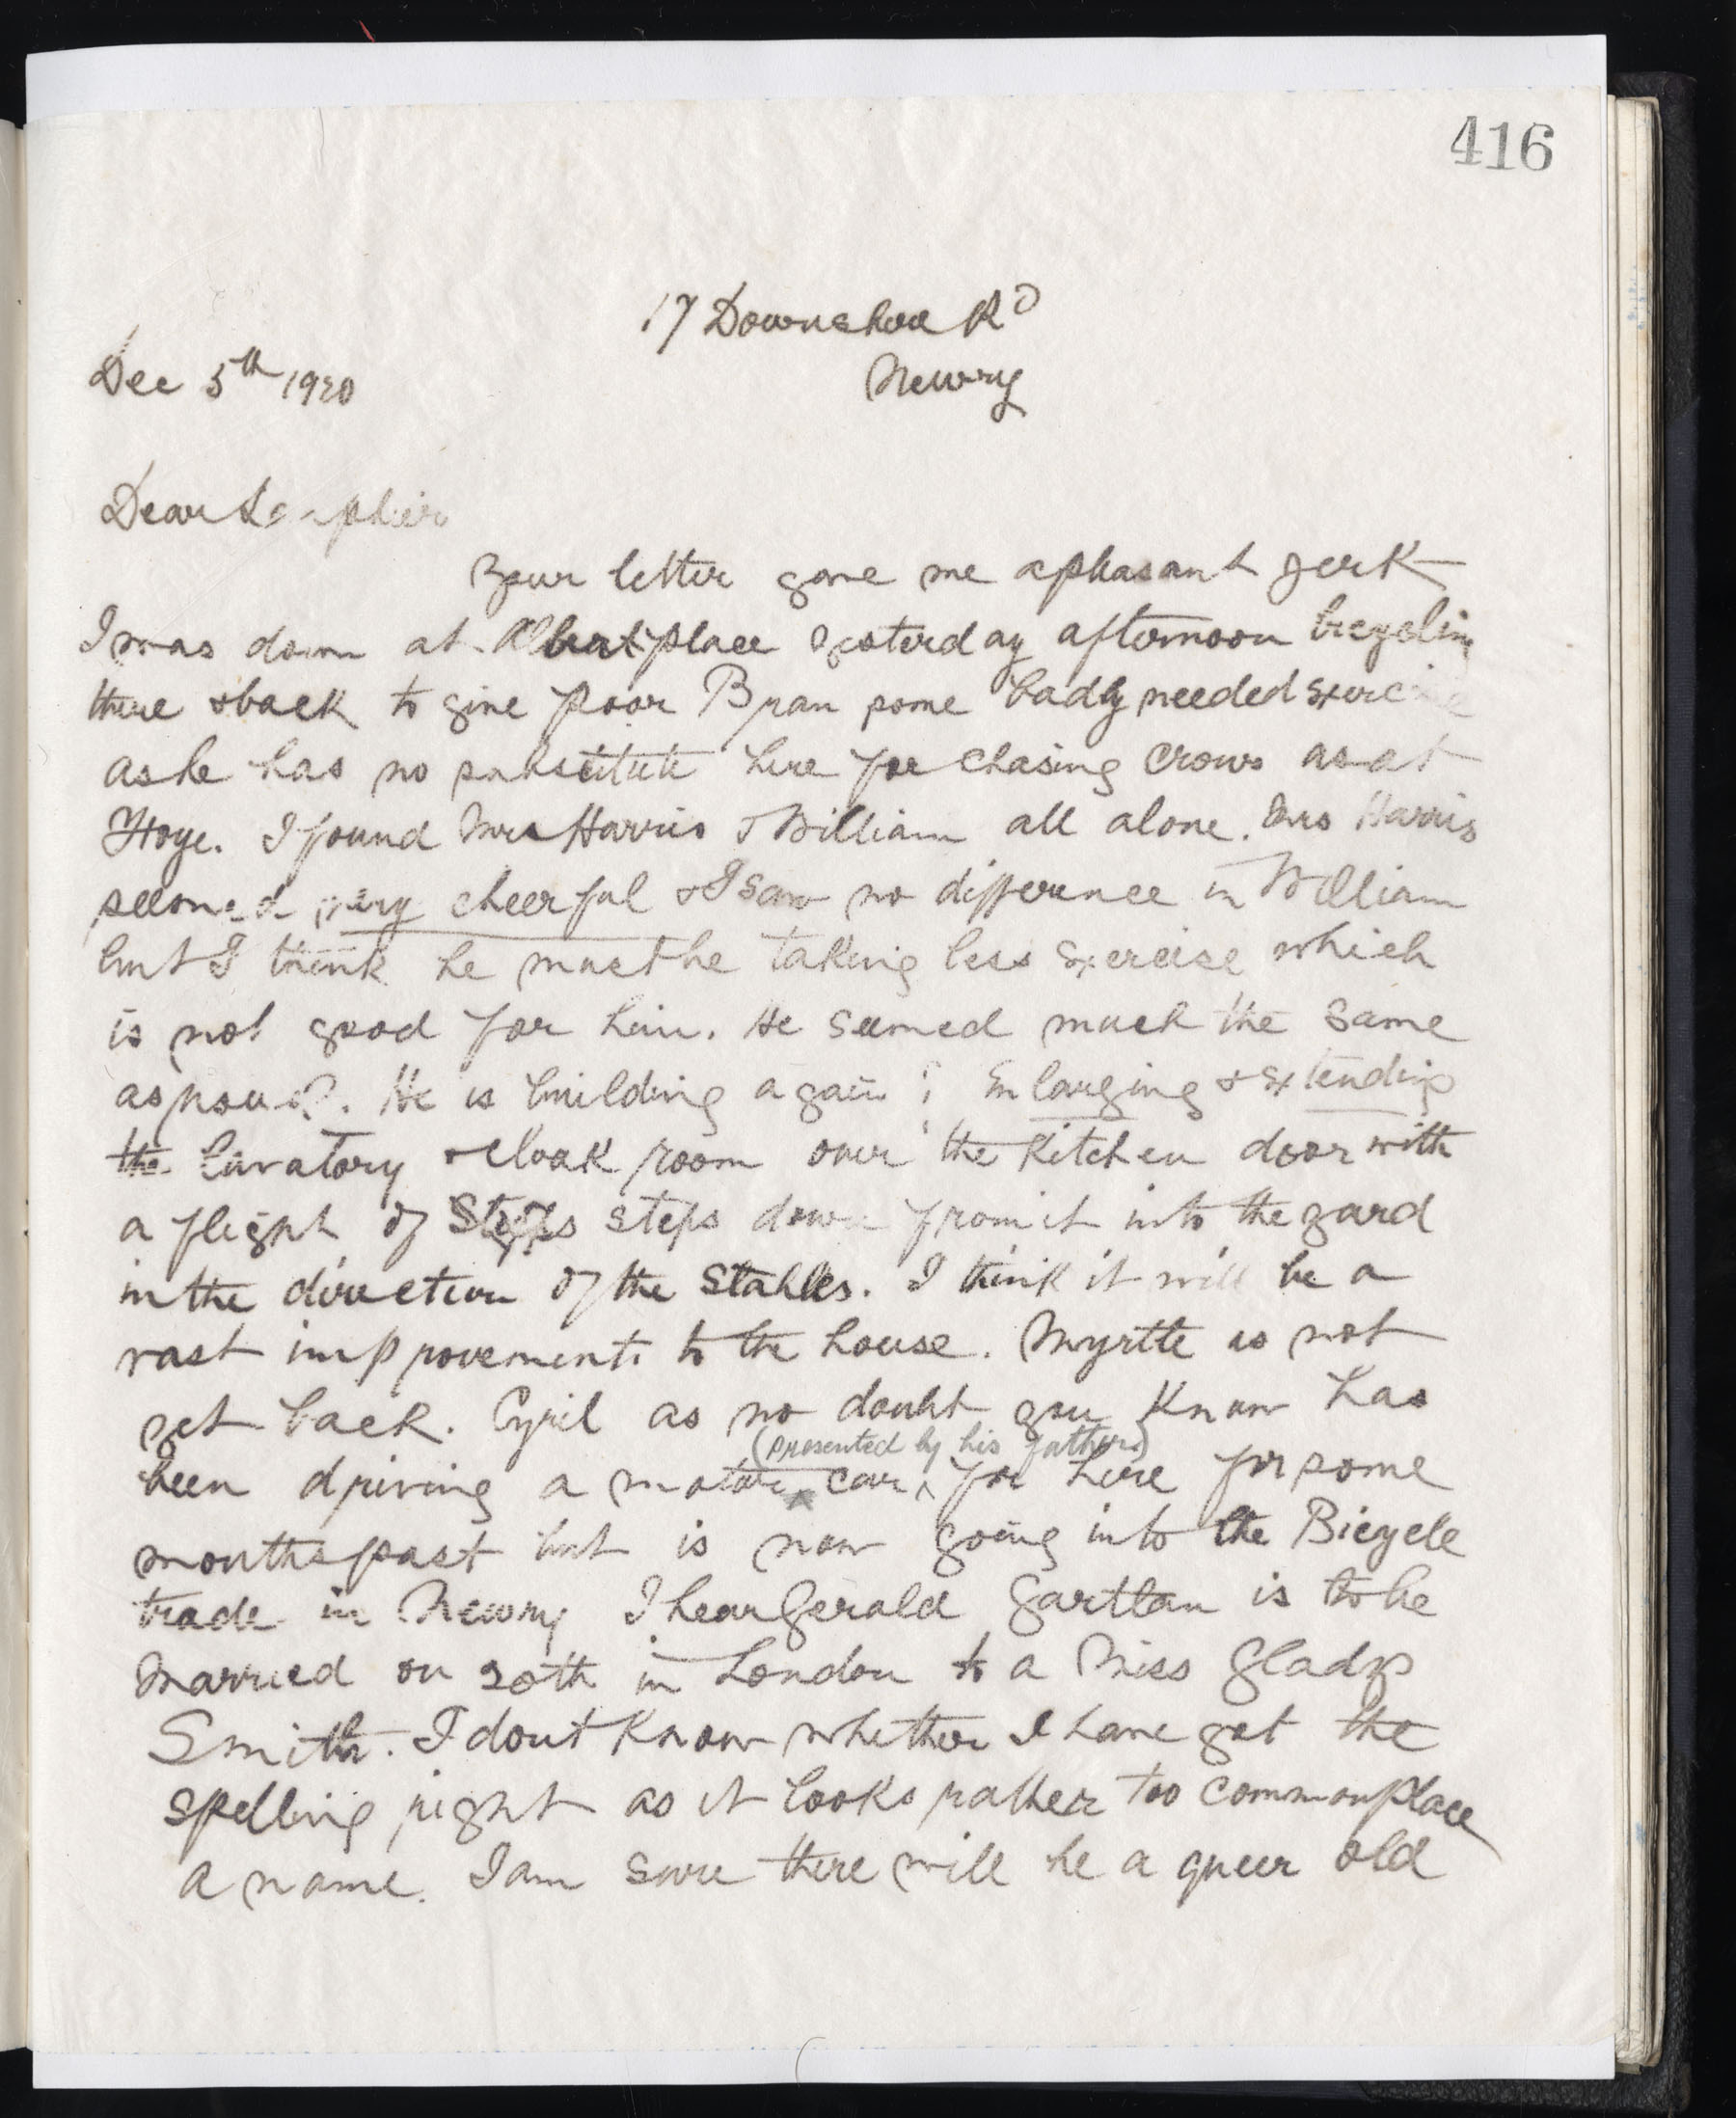 416
17 Downshire Rd
Dec 5th 1920
Newry
Dear
Your letter gave me a pleasant jerk
I was down at Albert place yesterday afternoon bicycling
there & back to give poor Bran some badly needed exercise
as he has no substitute here for chasing crows as at
Hoye. I found Mrs Harris & William all alone. Mrs Harris
seemed very cheerful & I saw no difference in William
but I think he must be taking less exercise which
is not good for him. He seemed much the same
as usual. He is building again! Enlarging & extending
the lavatory & cloak room over the kitchen door with
a flight of Steps steps down from it into the yard
in the direction of the stables. I think it will be a
vast improvement to the house. Myrtle is not
yet back. Cyril as no doubt you know has
(presented by his father)
been driving a motor car for hire for some
months past but is now going into the Bicycle
trade in Newry I hear Gerald Gartlan is to be
married on 20th in London to a Miss Gladys
Smith. I dont know whether I have got the
spelling right as it looks rather too commonplace
a name. I am sure there will be a queer old